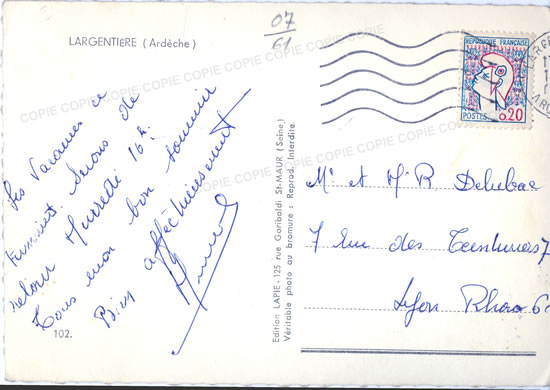 LARGENTIERE (Ardèche)
07
61
COPIE COPIE COPIE COPIE COPIE COPIE COPIE COPIE
REPUBLIQUE FRANÇAISE
POSTES 0,20
Les Vacances se
terminent. Serons de
retour Mercredi 16 h.
Tous mon bon souvenir
Bien affectueusement
102.
Edition LAPIE - 125 rue Garibaldi St-MAUR (Seine)
Véritable photo au bromure : Reprod. Interdite.
Mr et Mr Delubac
7 rue des Teinturiers 7
Lyon Rhône 6